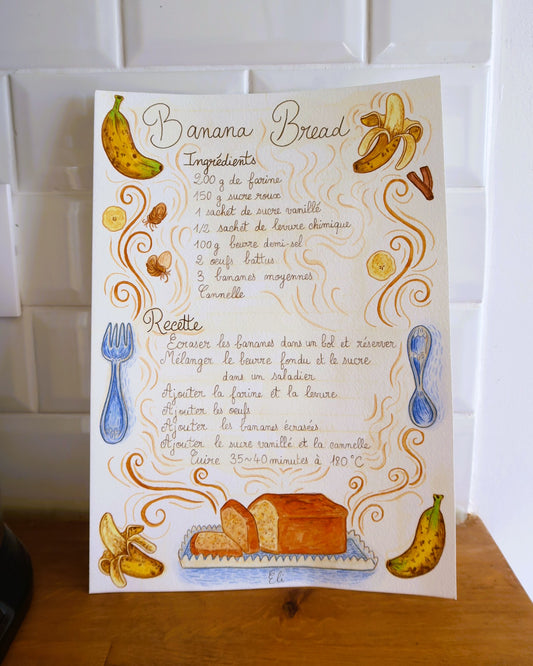 Banana Bread
Ingrédients
200 g de farine
150 g sucre roux
1 sachet de sucre vanillé
1/2 sachet de levure chimique
100 g beurre demi-sel
2 oeufs battus
3 bananes moyennes
Cannelle
Recette
Écraser les bananes dans un bol et réserver
Mélanger le beurre fondu et le sucre
dans un saladier
Ajouter la farine et la levure
Ajouter les oeufs
Ajouter les bananes écrasées
Ajouter le sucre vanillé et la cannelle
Cuire 35~40 minutes à 180°C
Eli